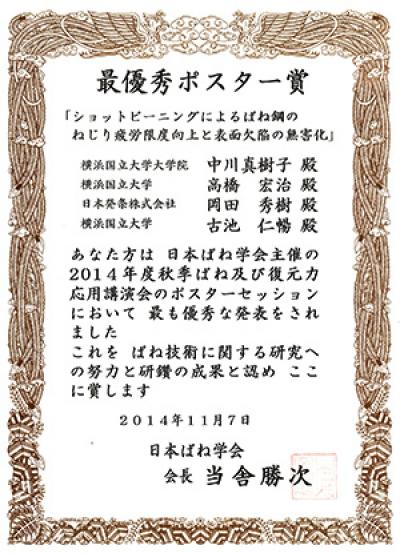 最優秀ポスター賞
「ショットピーニングによるばね鋼の
ねじり疲労限度向上と表面欠陥の無害化」
横浜国立大学大学院 中川真樹子 殿
横浜国立大学 高橋 宏治 殿
日本発条株式会社 岡田 秀樹 殿
横浜国立大学 古池 仁暢 殿
あなた方は 日本ばね学会主催の
2014年度秋季ばね及び復元力
応用講演会のポスターセッション
において 最も優秀な発表をされ
ました
これを ばね技術に関する研究へ
の努力と研鑽の成果と認め ここ
に賞します
2014年11月7日
日本ばね学会
会長 当舎勝次